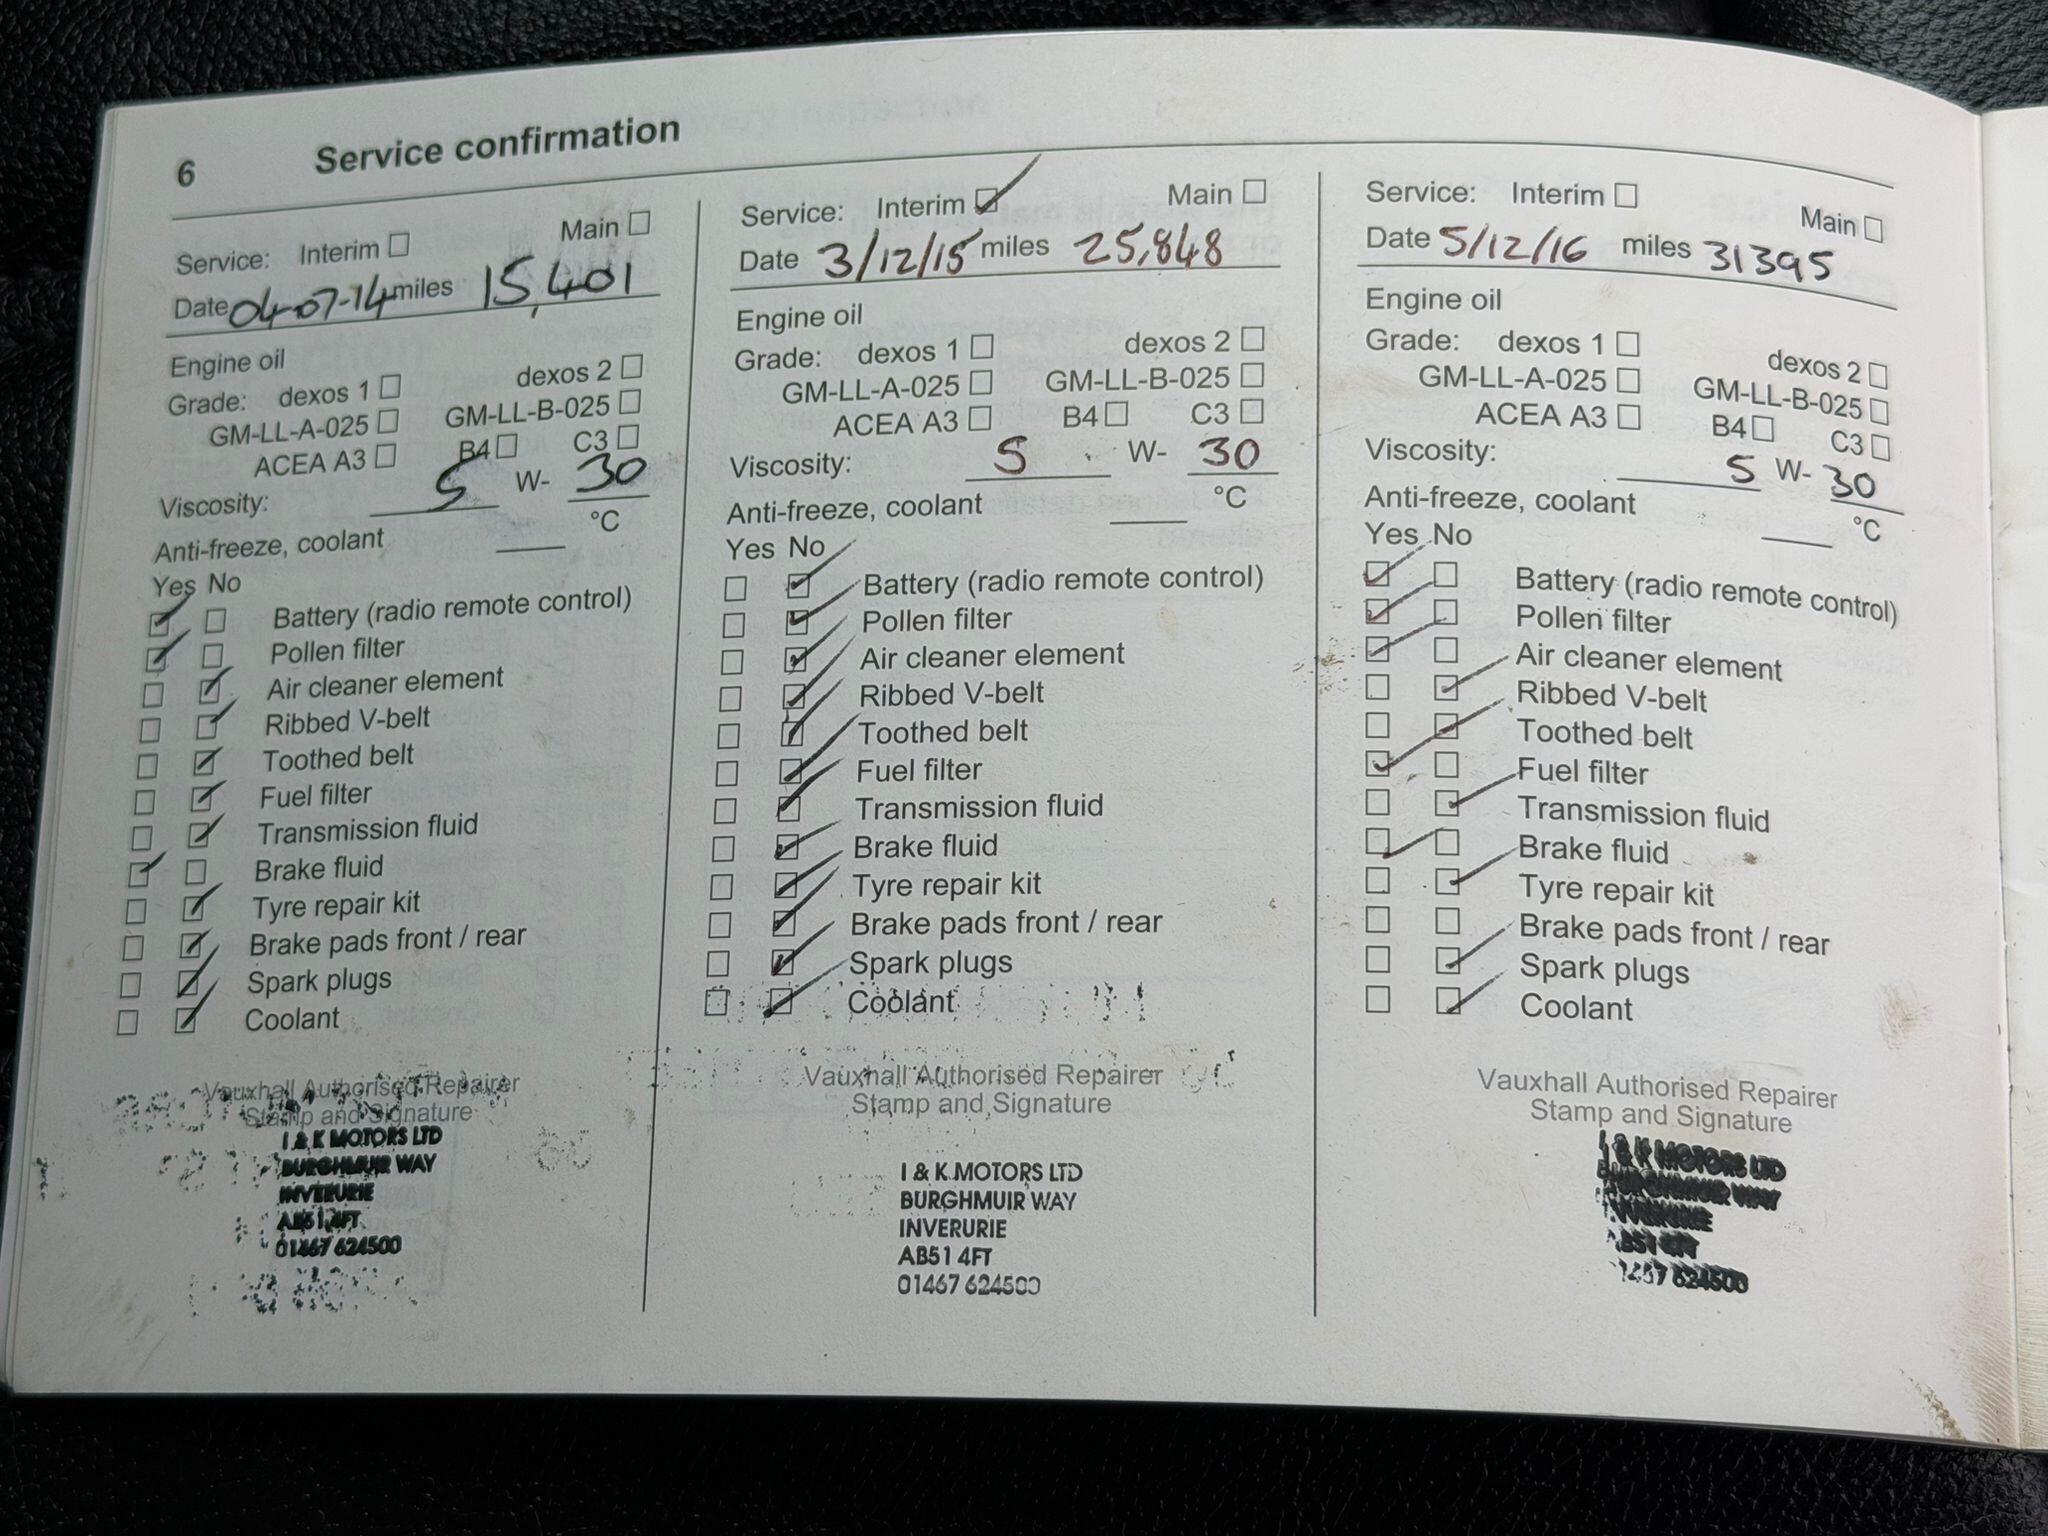 6 Service confirmation
Service: Interim Main
Date 04-07-14 miles 15,401
Engine oil
Grade: dexos 1 dexos 2
GM-LL-A-025 GM-LL-B-025
ACEA A3 B4 C3
Viscosity: 5 W- 30
Anti-freeze, coolant °C
Yes No
Battery (radio remote control)
Pollen filter
Air cleaner element
Ribbed V-belt
Toothed belt
Fuel filter
Transmission fluid
Brake fluid
Tyre repair kit
Brake pads front / rear
Spark plugs
Coolant
Vauxhall Authorised Repairer
Stamp and Signature
I & K MOTORS LTD
BURGHMUIR WAY
INVERURIE
AB51 4FT
01467 624500
Service: Interim Main
Date 3/12/15 miles 25,848
Engine oil
Grade: dexos 1 dexos 2
GM-LL-A-025 GM-LL-B-025
ACEA A3 B4 C3
Viscosity: 5 W- 30
Anti-freeze, coolant °C
Yes No
Battery (radio remote control)
Pollen filter
Air cleaner element
Ribbed V-belt
Toothed belt
Fuel filter
Transmission fluid
Brake fluid
Tyre repair kit
Brake pads front / rear
Spark plugs
Coolant
Vauxhall Authorised Repairer
Stamp and Signature
I & K MOTORS LTD
BURGHMUIR WAY
INVERURIE
AB51 4FT
01467 624500
Service: Interim Main
Date 5/12/16 miles 31395
Engine oil
Grade: dexos 1 dexos 2
GM-LL-A-025 GM-LL-B-025
ACEA A3 B4 C3
Viscosity: 5 W- 30
Anti-freeze, coolant °C
Yes No
Battery (radio remote control)
Pollen filter
Air cleaner element
Ribbed V-belt
Toothed belt
Fuel filter
Transmission fluid
Brake fluid
Tyre repair kit
Brake pads front / rear
Spark plugs
Coolant
Vauxhall Authorised Repairer
Stamp and Signature
I & K MOTORS LTD
BURGHMUIR WAY
INVERURIE
AB51 4FT
01467 624500